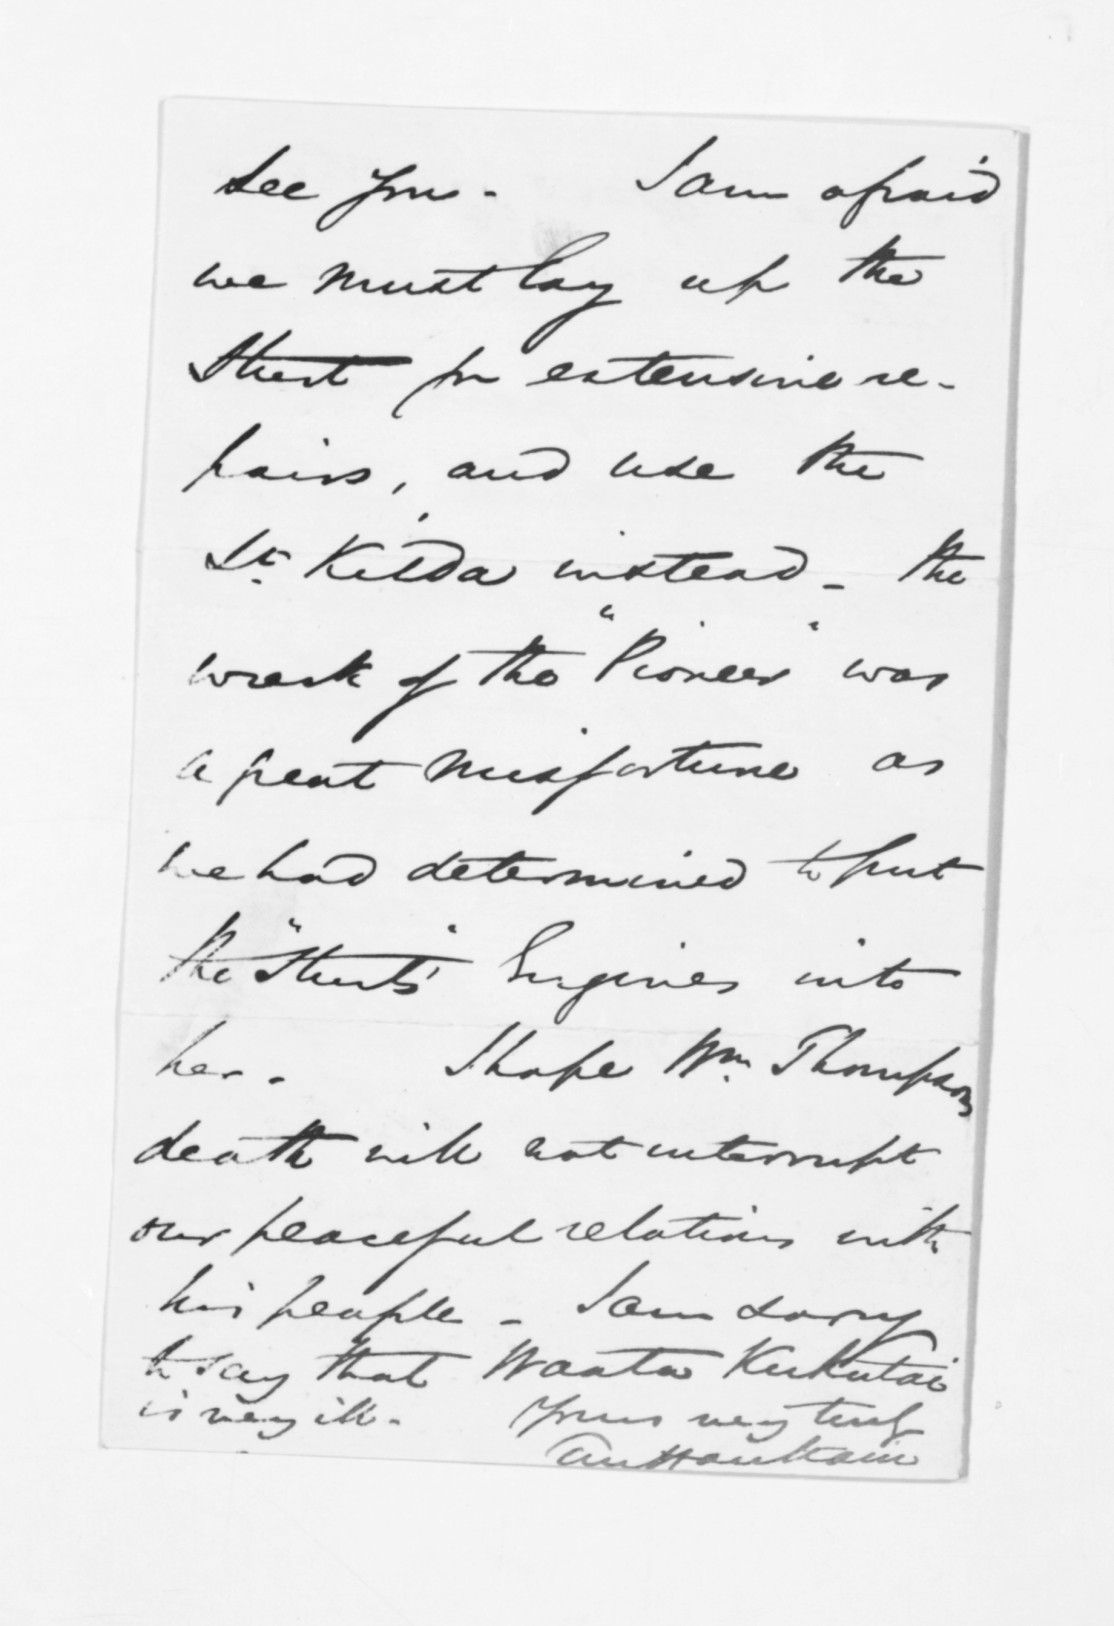 see you - I am afraid
we must lay up the
Sturt for extensive re-
pairs, and use the
St. Kilda instead - the
wreck of the "Pioneer" was
a great misfortune as
we had determined to put
the "Sturt's" Engines into
her. I hope Wm. Thompsons
death will not interrupt
our peaceful relations with
his people - I am sorry
to say that Waata Kukutai
is very ill. Yours very truly